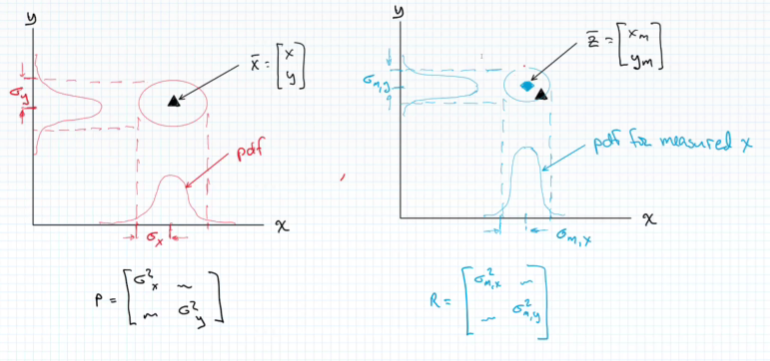 y
x̄ = [x
y]
σy
pdf
x
σx
P = [σ²x ~
~ σ²y]
y
z̄ = [xm
ym]
σm,y
pdf for measured x
x
σm,x
R = [σ²m,x ~
~ σ²m,y]